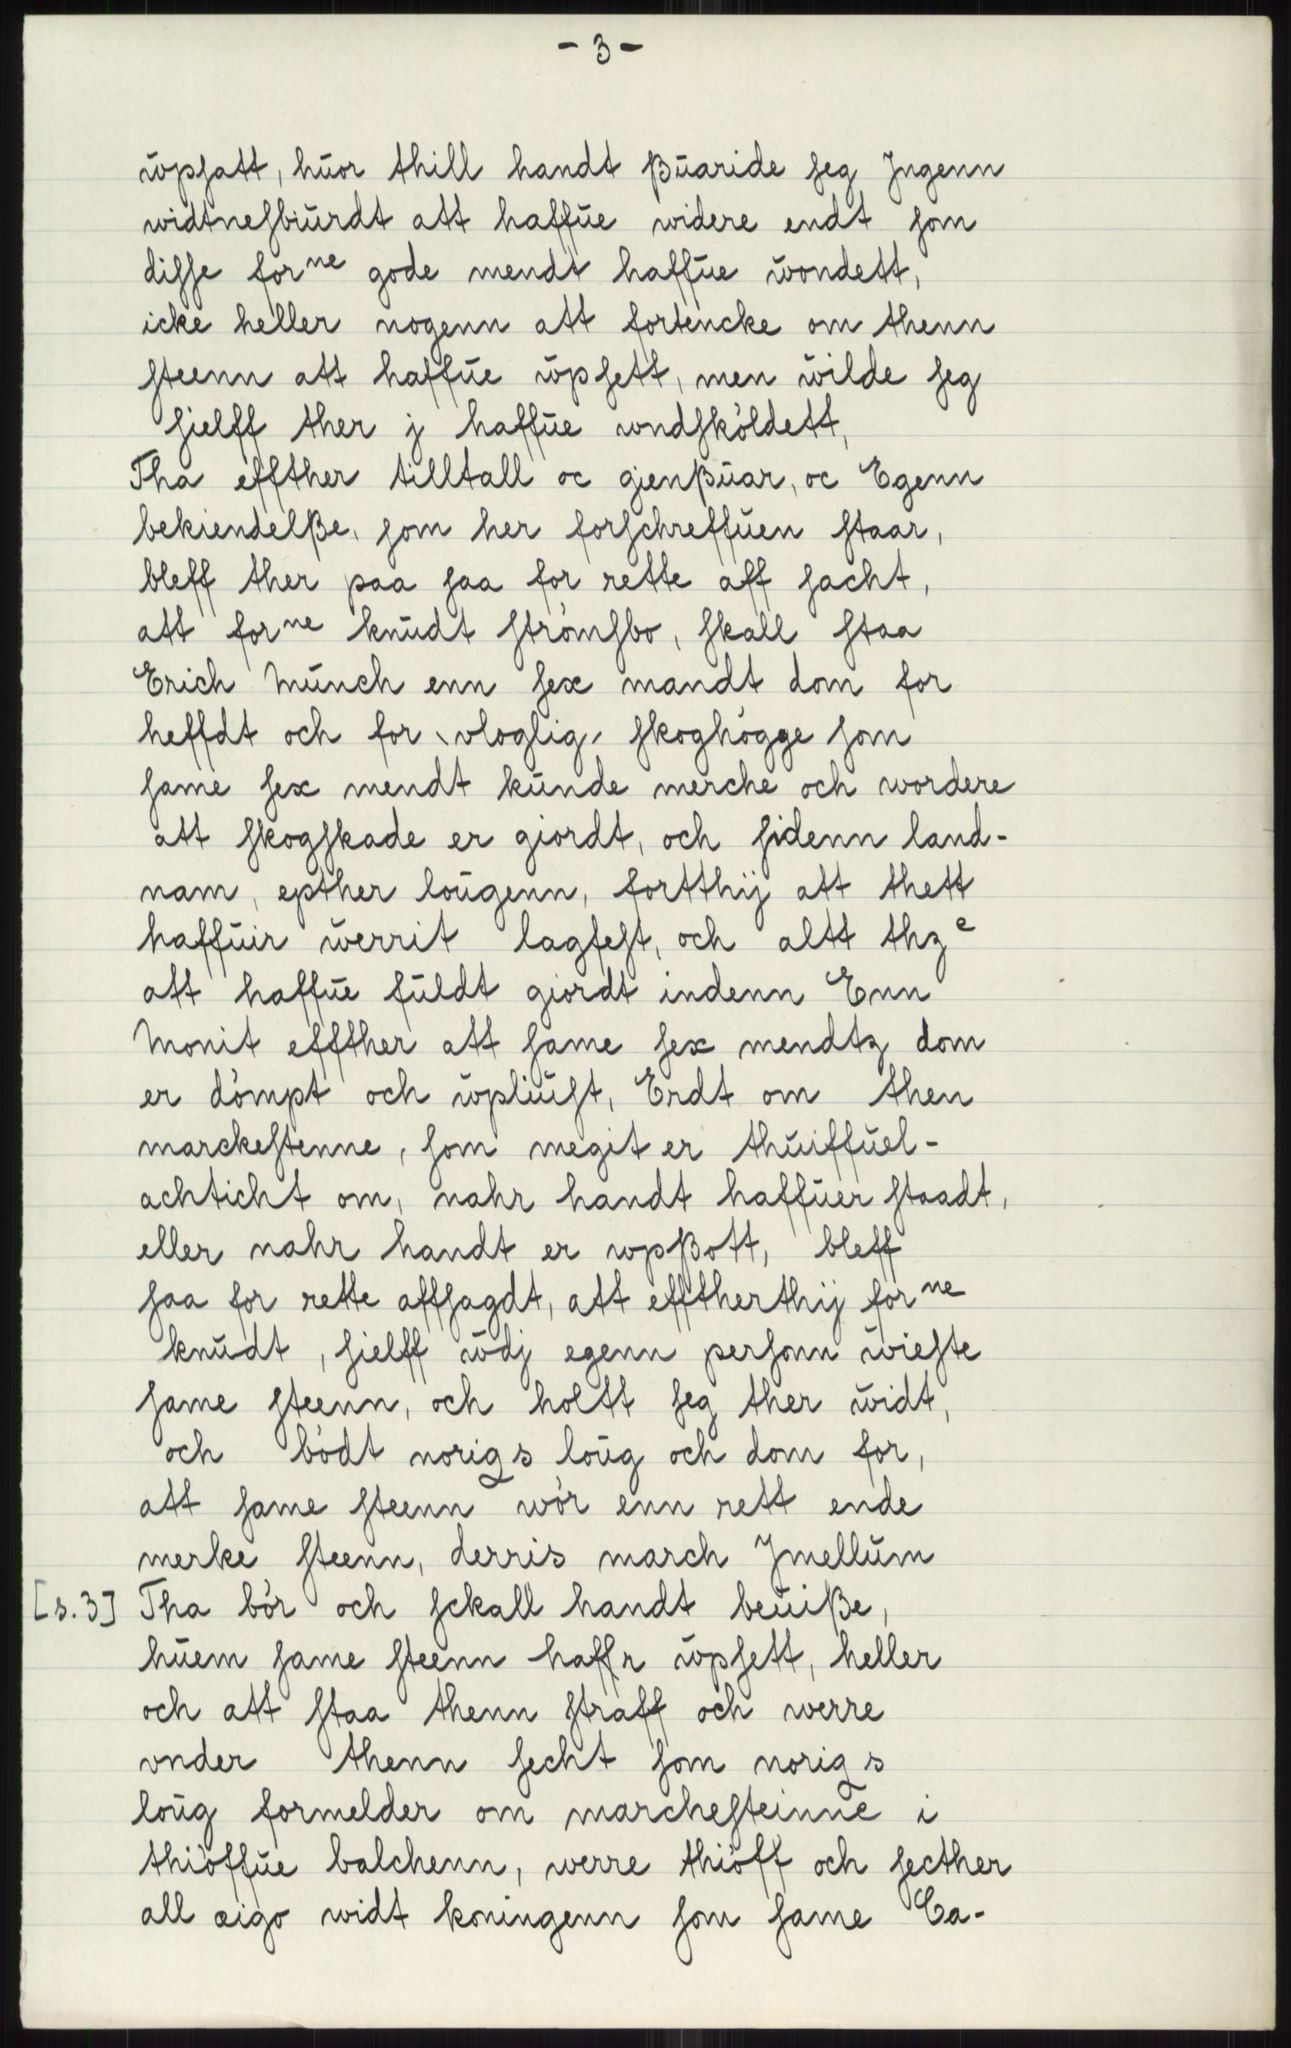 - 3 -
ŭpsatt, hŭor thill handt ßŭaride seg Jngenn
widtnesbŭrdt att haffŭe widere endt som
disse forne gode mendt haffŭe ŭondett,
icke heller nogenn att fortencke om thenn
steenn att haffŭe ŭpsett, men ŭilde seg
sielff ther j haffŭe wndsköldett,
Tha effther tilltall oc gienßŭar, oc Egenn
bekiendelße, som her forschreffŭen staar,
bleff ther paa saa for rette aff sacht,
att forne knŭdt strömsbo, skall staa
Erich Mŭnch enn sex mandt dom for
heffdt och for vloglig skoghögge som
same sex mendt kŭnde merche och wordere
att skogskade er giordt, och sidenn land-
nam, epther loŭgenn, fortthij att thett
haffŭir ŭerrit lagfest, och altt thze
att haffŭe fŭldt giordt indenn Enn
Monit effther att same sex mendtz dom
er dömpt och ŭpliŭst, Erdt om then
marckestenne, som megit er thŭiffŭel-
achticht om, nahr handt haffŭer staadt,
eller nahr handt er wpßott, bleff
saa for rette affsagdt, att efftherthij forne
knŭdt, sielff ŭdj egenn personn ŭieste
same steenn, och holtt seg ther ŭidt,
och bödt norigs loŭg och dom for,
att same steenn wör enn rett ende
merke steenn, derris march Jmellŭm
[s. 3] Tha bör och sckall handt beŭiße,
hŭem same steenn haffr ŭpsett, heller
och att staa thenn straff och werre
vnder thenn secht som norigs
loŭg formelder om marchesteinne i
thiöffŭe balchenn, werre thiöff och secther
all æigo widt koningenn som same Ca-